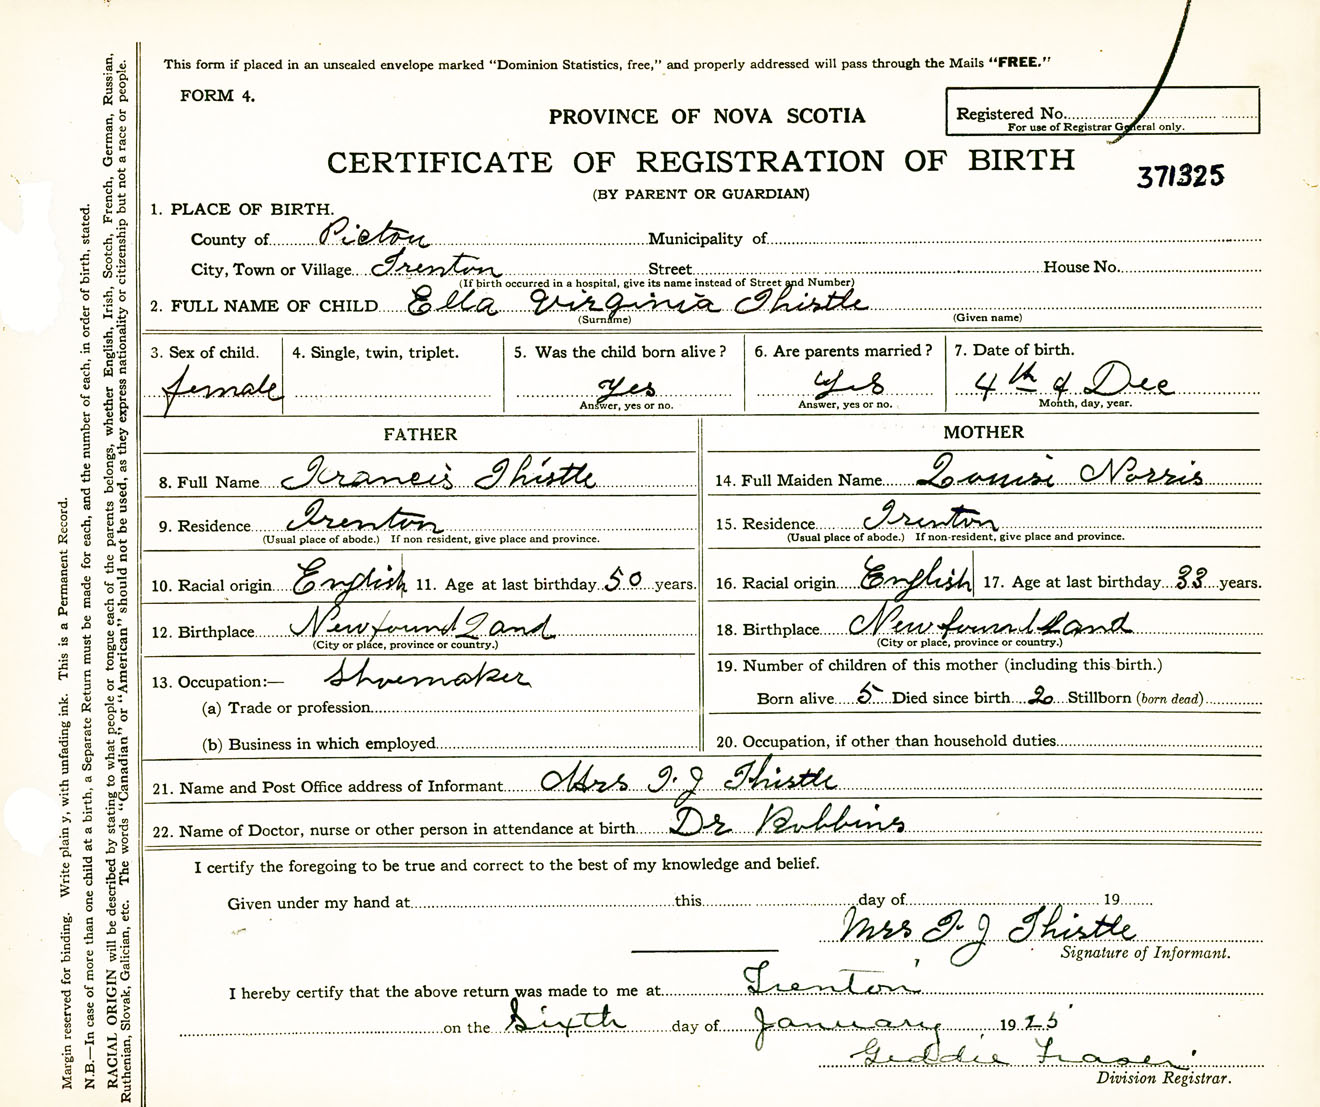 This form if placed in an unsealed envelope marked "Dominion Statistics, free," and properly addressed will pass through the Mails "FREE."
FORM 4.
PROVINCE OF NOVA SCOTIA
Registered No.
For use of Registrar General only.
CERTIFICATE OF REGISTRATION OF BIRTH
371325
(BY PARENT OR GUARDIAN)
1. PLACE OF BIRTH.
County of Pictou Municipality of
City, Town or Village Trenton Street House No.
(If birth occurred in a hospital, give its name instead of Street and Number)
2. FULL NAME OF CHILD Ella Virginia Thistle
(Surname) (Given name)
3. Sex of child. 4. Single, twin, triplet. 5. Was the child born alive? 6. Are parents married? 7. Date of birth.
female Yes Yes 4th of Dec
Answer, yes or no. Answer, yes or no. Month, day, year.
FATHER MOTHER
8. Full Name Francis Thistle 14. Full Maiden Name Louisi Norris
9. Residence Trenton 15. Residence Trenton
(Usual place of abode.) If non resident, give place and province. (Usual place of abode.) If non-resident, give place and province.
10. Racial origin English 11. Age at last birthday 50 years. 16. Racial origin English 17. Age at last birthday 33 years.
12. Birthplace Newfoundland 18. Birthplace Newfoundland
(City or place, province or country.) (City or place, province or country.)
13. Occupation:— Shoemaker 19. Number of children of this mother (including this birth.)
(a) Trade or profession Born alive 5 Died since birth 2 Stillborn (born dead)
(b) Business in which employed 20. Occupation, if other than household duties
21. Name and Post Office address of Informant Mrs F. J Thistle
22. Name of Doctor, nurse or other person in attendance at birth Dr Robbins
I certify the foregoing to be true and correct to the best of my knowledge and belief.
Given under my hand at this day of 19
Mrs F. J Thistle
Signature of Informant.
I hereby certify that the above return was made to me at Trenton
on the Sixth day of January 1925
Geddie Fraser
Division Registrar.
Margin reserved for binding. Write plainly, with unfading ink. This is a Permanent Record.
N.B.—In case of more than one child at a birth, a Separate Return must be made for each, and the number of each, in order of birth, stated.
RACIAL ORIGIN will be described by stating to what people or tongue each of the parents belongs, whether English, Irish, Scotch, French, German, Russian,
Ruthenian, Slovak, Galician, etc. The words "Canadian" or "American" should not be used, as they express nationality or citizenship but not a race or people.